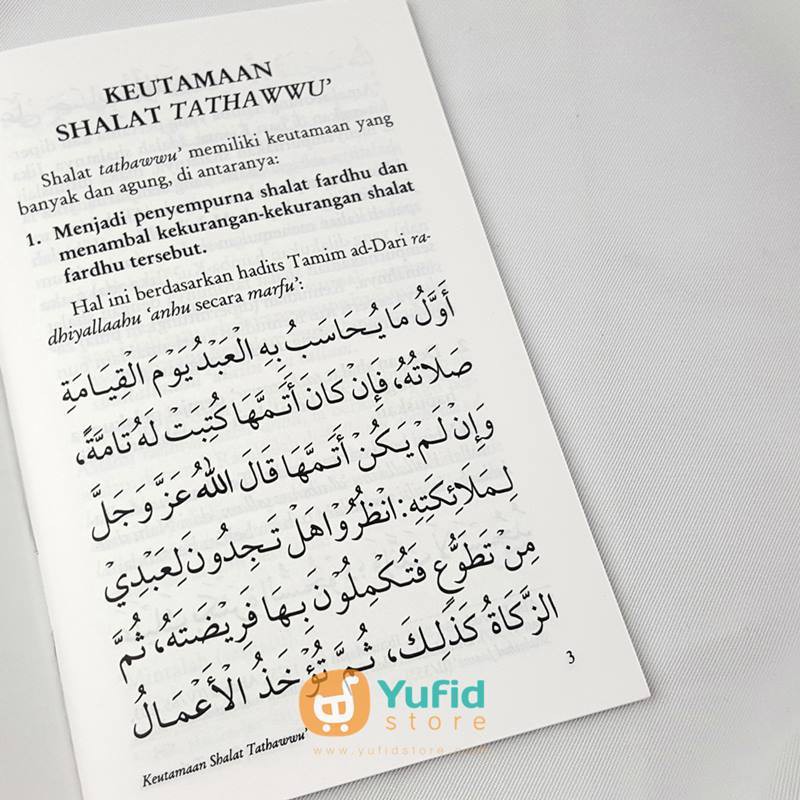 KEUTAMAAN
SHALAT TATHAWWU’
Shalat tathawwu’ memiliki keutamaan yang
banyak dan agung, di antaranya:
1. Menjadi penyempurna shalat fardhu dan
menambal kekurangan-kekurangan shalat
fardhu tersebut.
Hal ini berdasarkan hadits Tamim ad-Dari ra-
dhiyallaahu ‘anhu secara marfu’:
أَوَّلُ مَا يُحَاسَبُ بِهِ الْعَبْدُ يَوْمَ الْقِيَامَةِ
صَلَاتُهُ، فَإِنْ كَانَ أَتَمَّهَا كُتِبَتْ لَهُ تَامَّةً،
وَإِنْ لَمْ يَكُنْ أَتَمَّهَا قَالَ اللهُ عَزَّ وَجَلَّ
لِمَلَائِكَتِهِ: انْظُرُوْا هَلْ تَجِدُونَ لِعَبْدِيْ
مِنْ تَطَوُّعٍ فَتُكْمِلُوْنَ بِهَا فَرِيْضَتَهُ، ثُمَّ
الزَّكَاةُ كَذَلِكَ، ثُمَّ تُؤْخَذُ الْأَعْمَالُ
3
Yufid
store
www.yufidstore.com
Keutamaan Shalat Tathawwu’